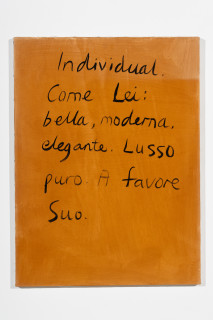 Individual.
Come Lei:
bella, moderna,
elegante. Lusso
puro. A favore
Suo.